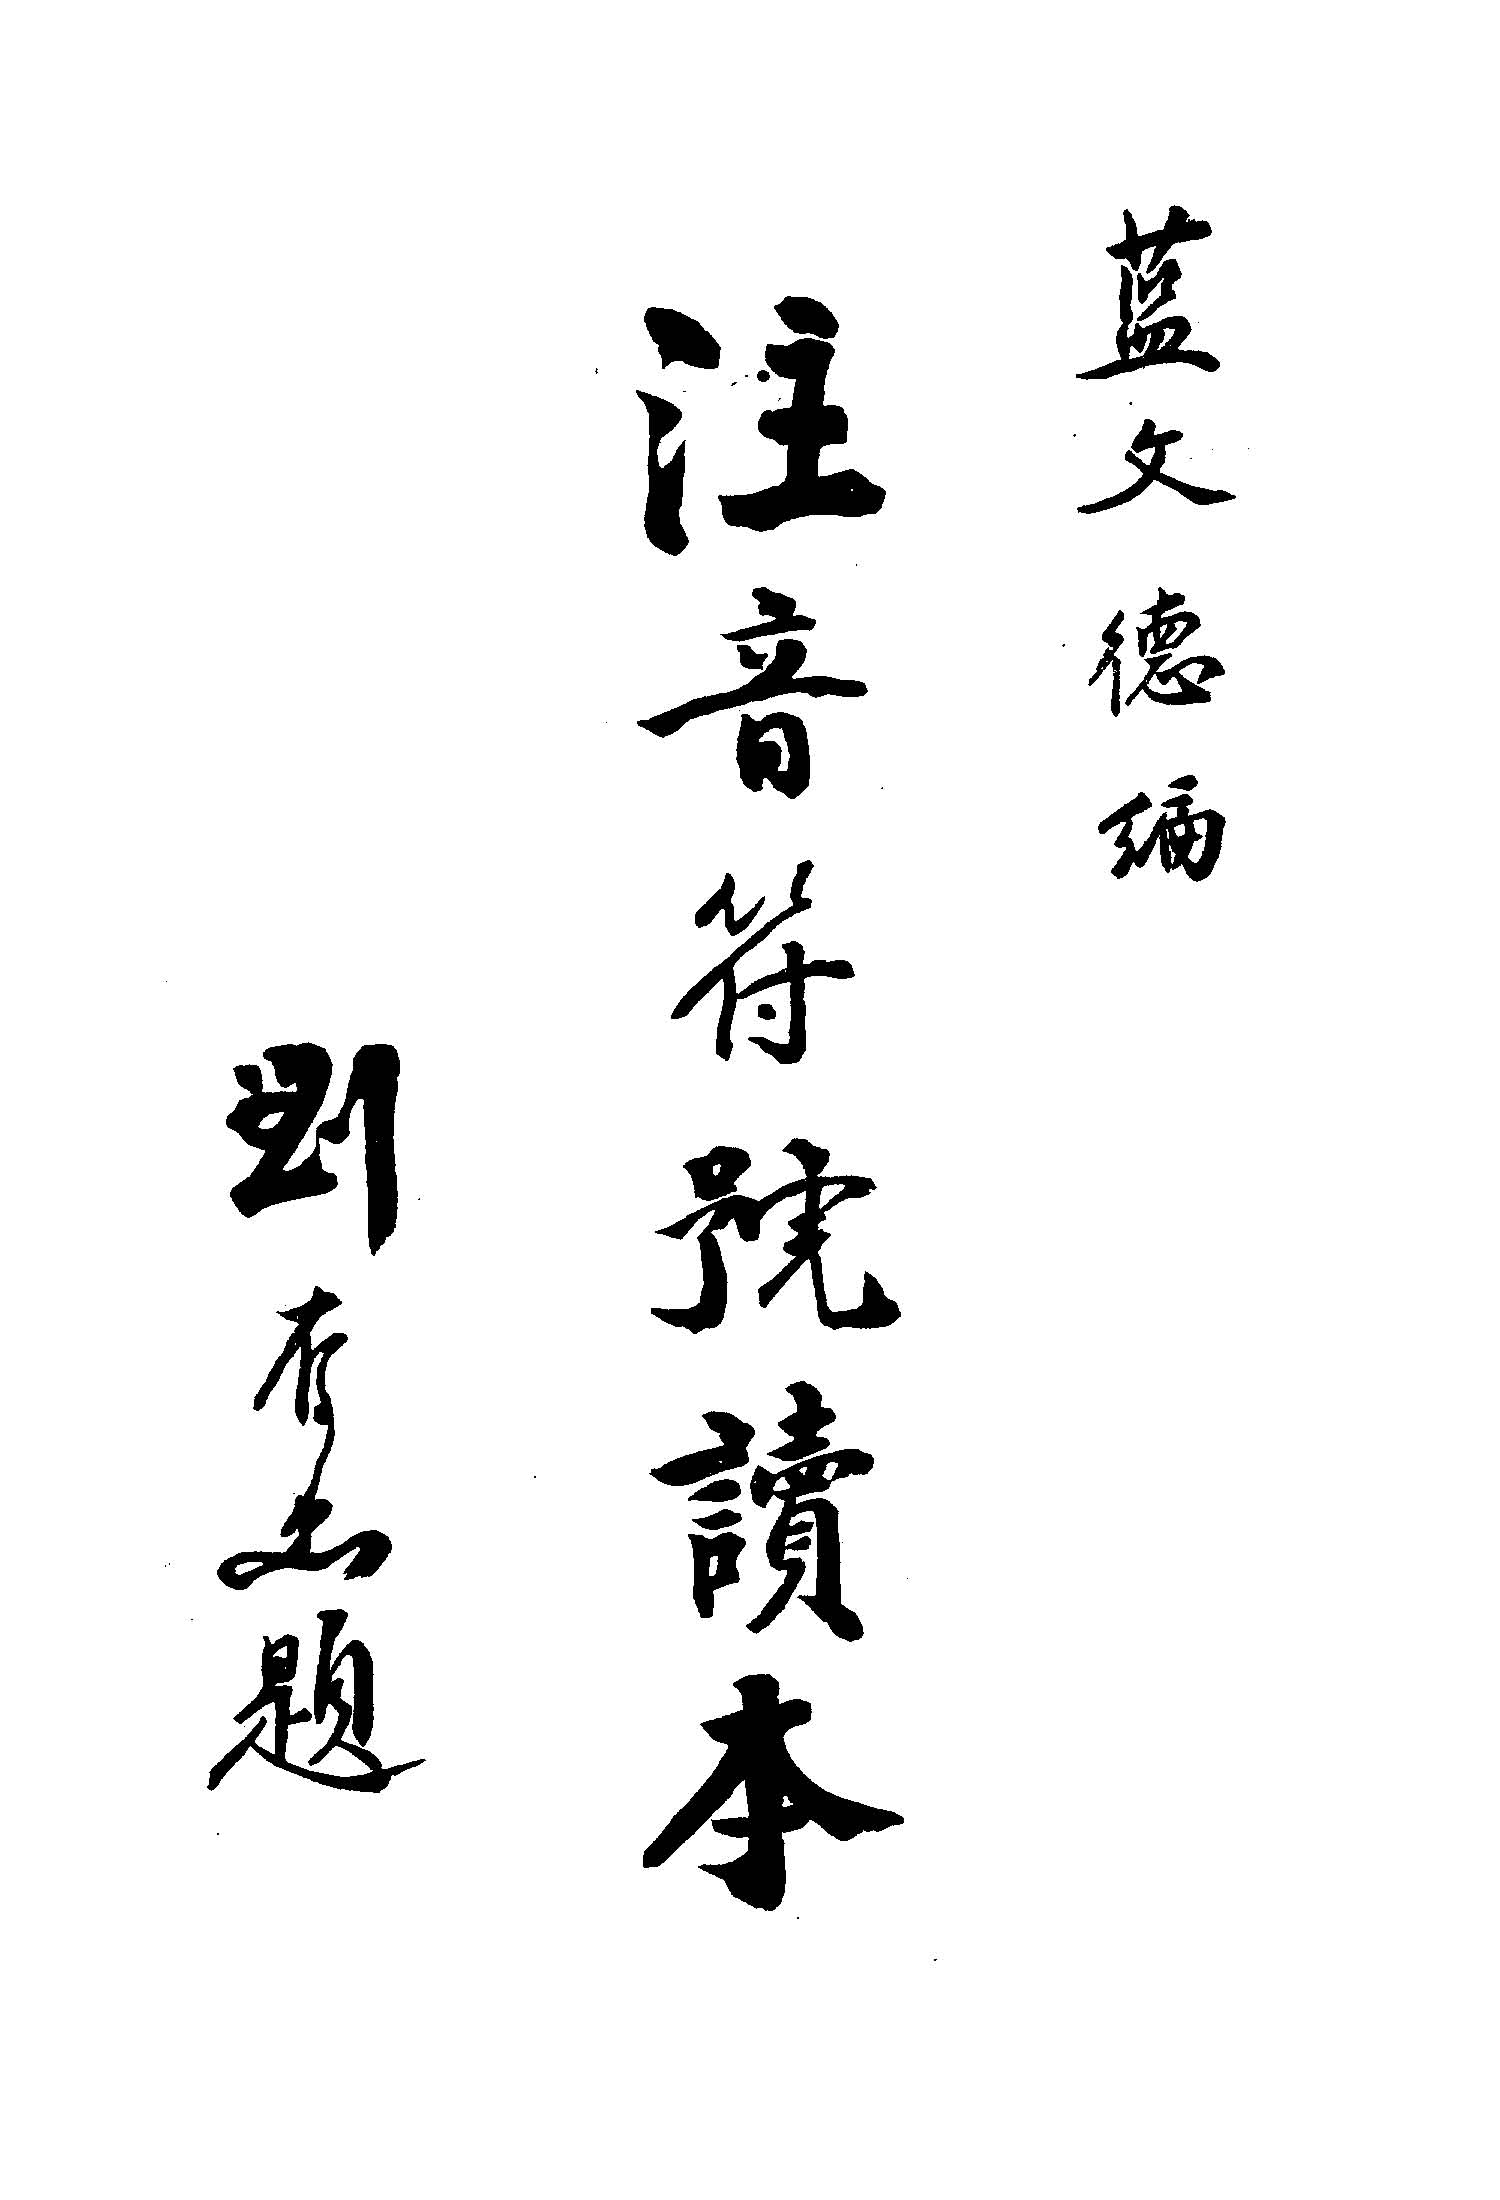 藍文德編
注音符號讀本
劉有 題